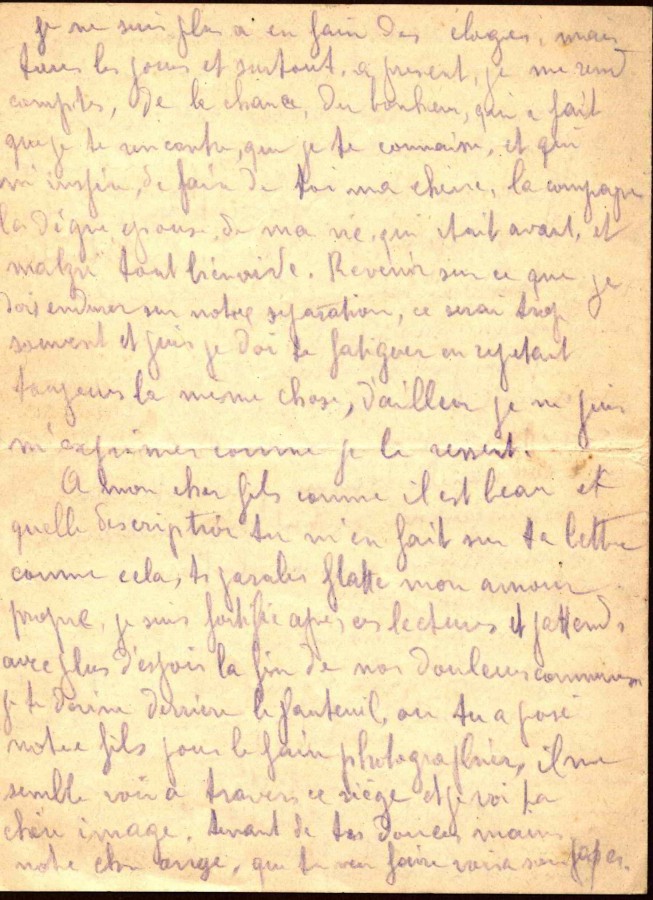 je ne suis plus a en fair des eloges, mais
tous les jours et surtout, a present, je me rend
comptes, de la chance, du bonheur, qui a fait
que je te rencontre, que je te connaisse, et qui
m'inspira, de fair de toi ma cherie, la compagne
la digne epouse, de ma vie, qui etait avant, et
malgré tout bien vide. Revenir sur ce que je
dois endurer sur notre separation, ce serai trop
souvent et puis je doi te fatiguer en repetant
toujours la meme chose, d'ailleur je ne puis
m'exprimer comme je le ressent.
A mon cher fils comme il est beau et
quelle description tu m'en fait sur ta lettre
comme cela, ts paroles flatte mon amour
propre, je suis fortifié apres ces lectures et j'attends
avec plus d'espoir la fin de nos douleurs communes
je te devine derriere le fauteuil, ou tu a posé
notre fils pour le fair photographier, il me
semble voir a travers ce siège et je voi ta
chère image, tenant de tes douces mains
notre cher ange, que tu veu faire voir a son papa.